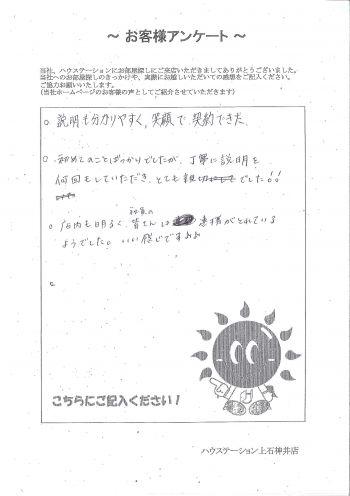 ～ お客様アンケート ～
当社、ハウステーションにお部屋探しにご来店いただきましてありがとうございました。
当社へのお部屋探しのきっかけや、実際にお越しいただいての感想をご記入ください。
ご協力お願いいたします。
(当社ホームページのお客様の声としてご紹介させていただきます)
○ 説明も分かりやすく、笑顔で契約できた。
○ 初めてのことばっかりでしたが、丁寧に説明を
何回もしていただき、とても親切でした!!
○ 店内も明るく、社員の皆さんは連携がとれている
ようでした。いい感じですね
こちらにご記入ください！
ハウステーション上石神井店